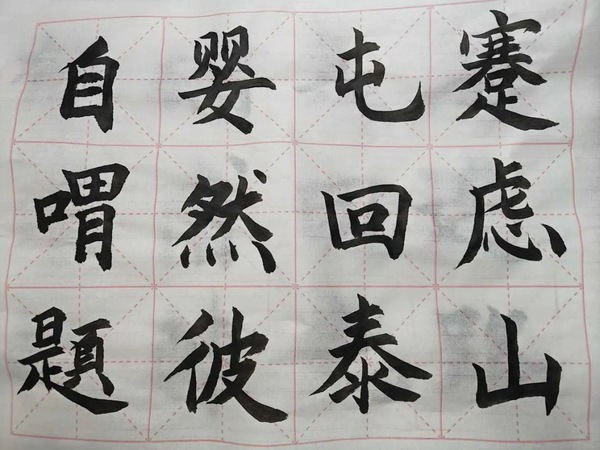 自婴屯蹇
喟然回虑
題彼泰山